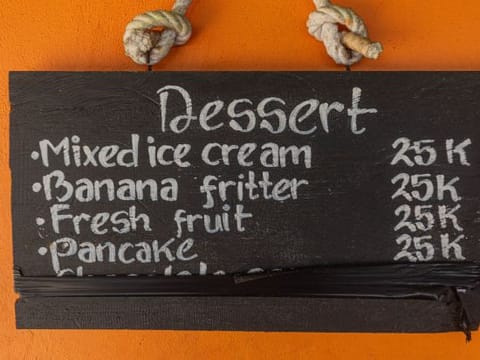 Dessert
•Mixed ice cream 25K
•Banana fritter 25K
•Fresh fruit 25K
•Pancake 25K